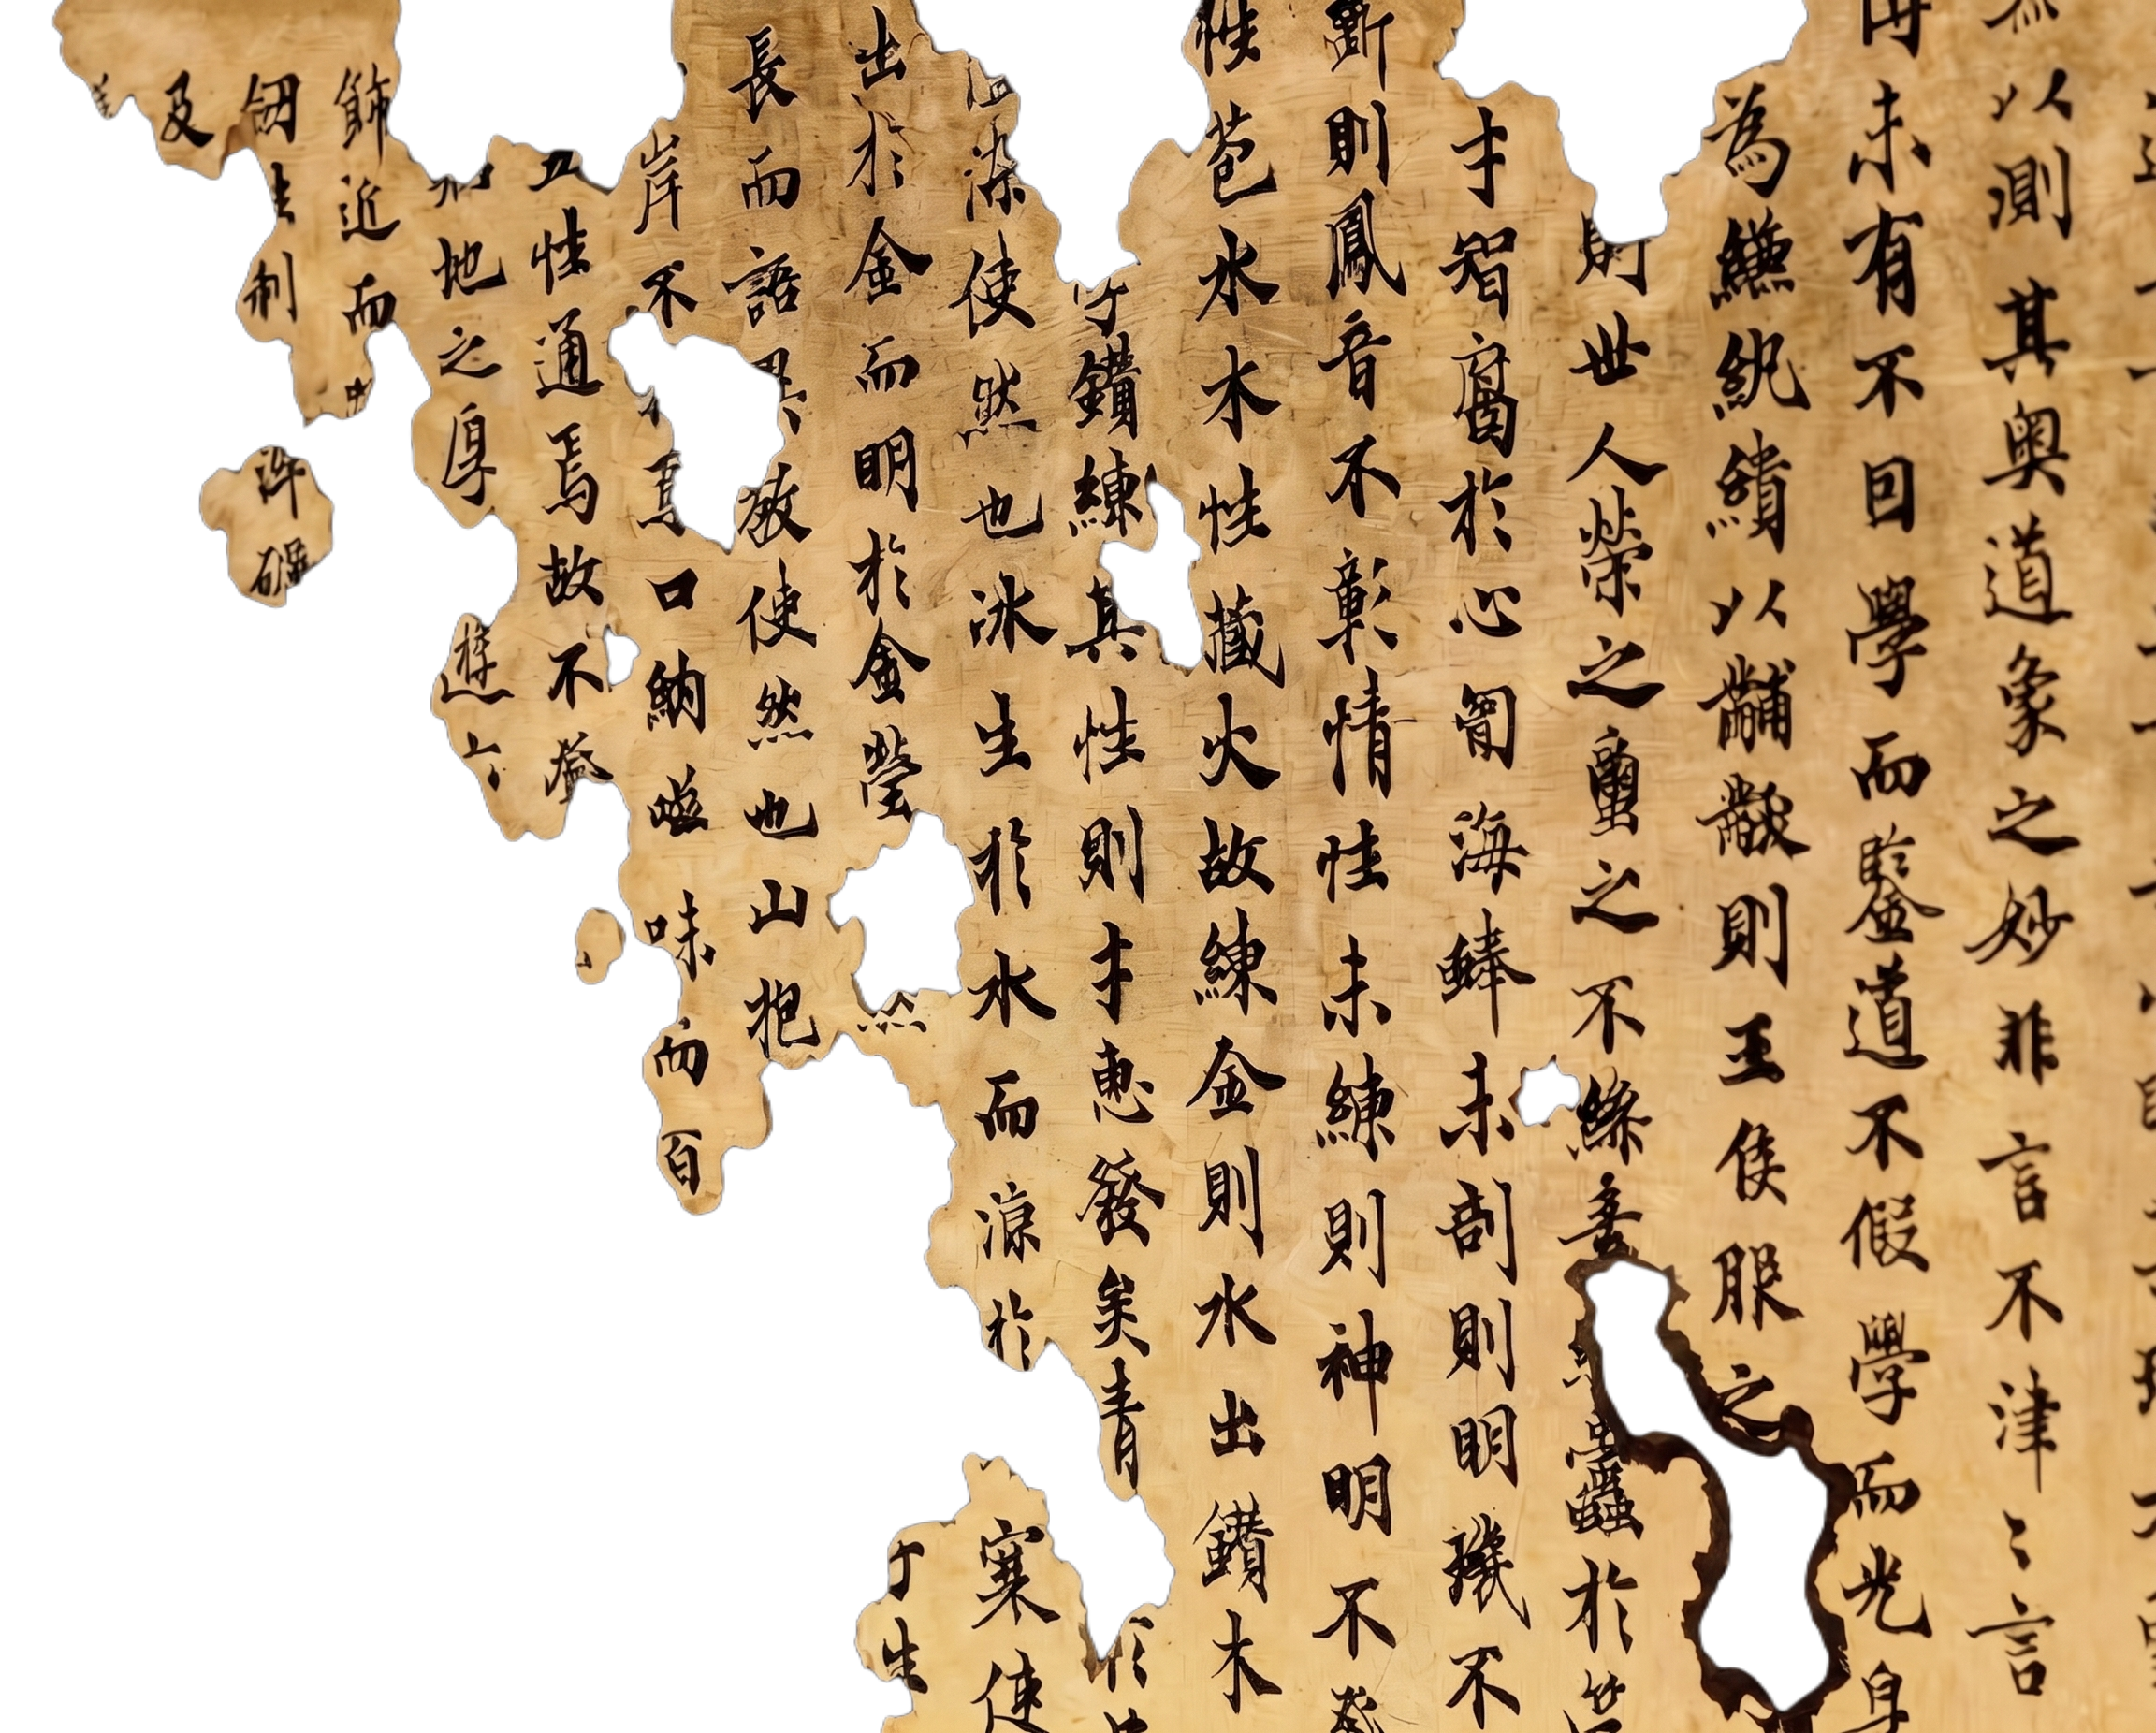 以測其奧道象之妙非言不津〻言
未有不回學而鑒道不假學而光身
為縑紈繢以黼黻則王侯服之
則世人榮之蠒之不絲 蠹於
才智腐於心匈海蜯未剖則明璣不
斷則鳳音不彰情性未練則神明不
性苞水木性藏火故練金則水出鑽木
鑽練其性則才惠發矣青
染使然也冰生於水而涼於寒使
出於金而明於金瑩生
長而語異敬使然也山抱
岸不焉口納嗞味而百
五性通焉故不登
地之厚遊
飾近而
釰利礪
及